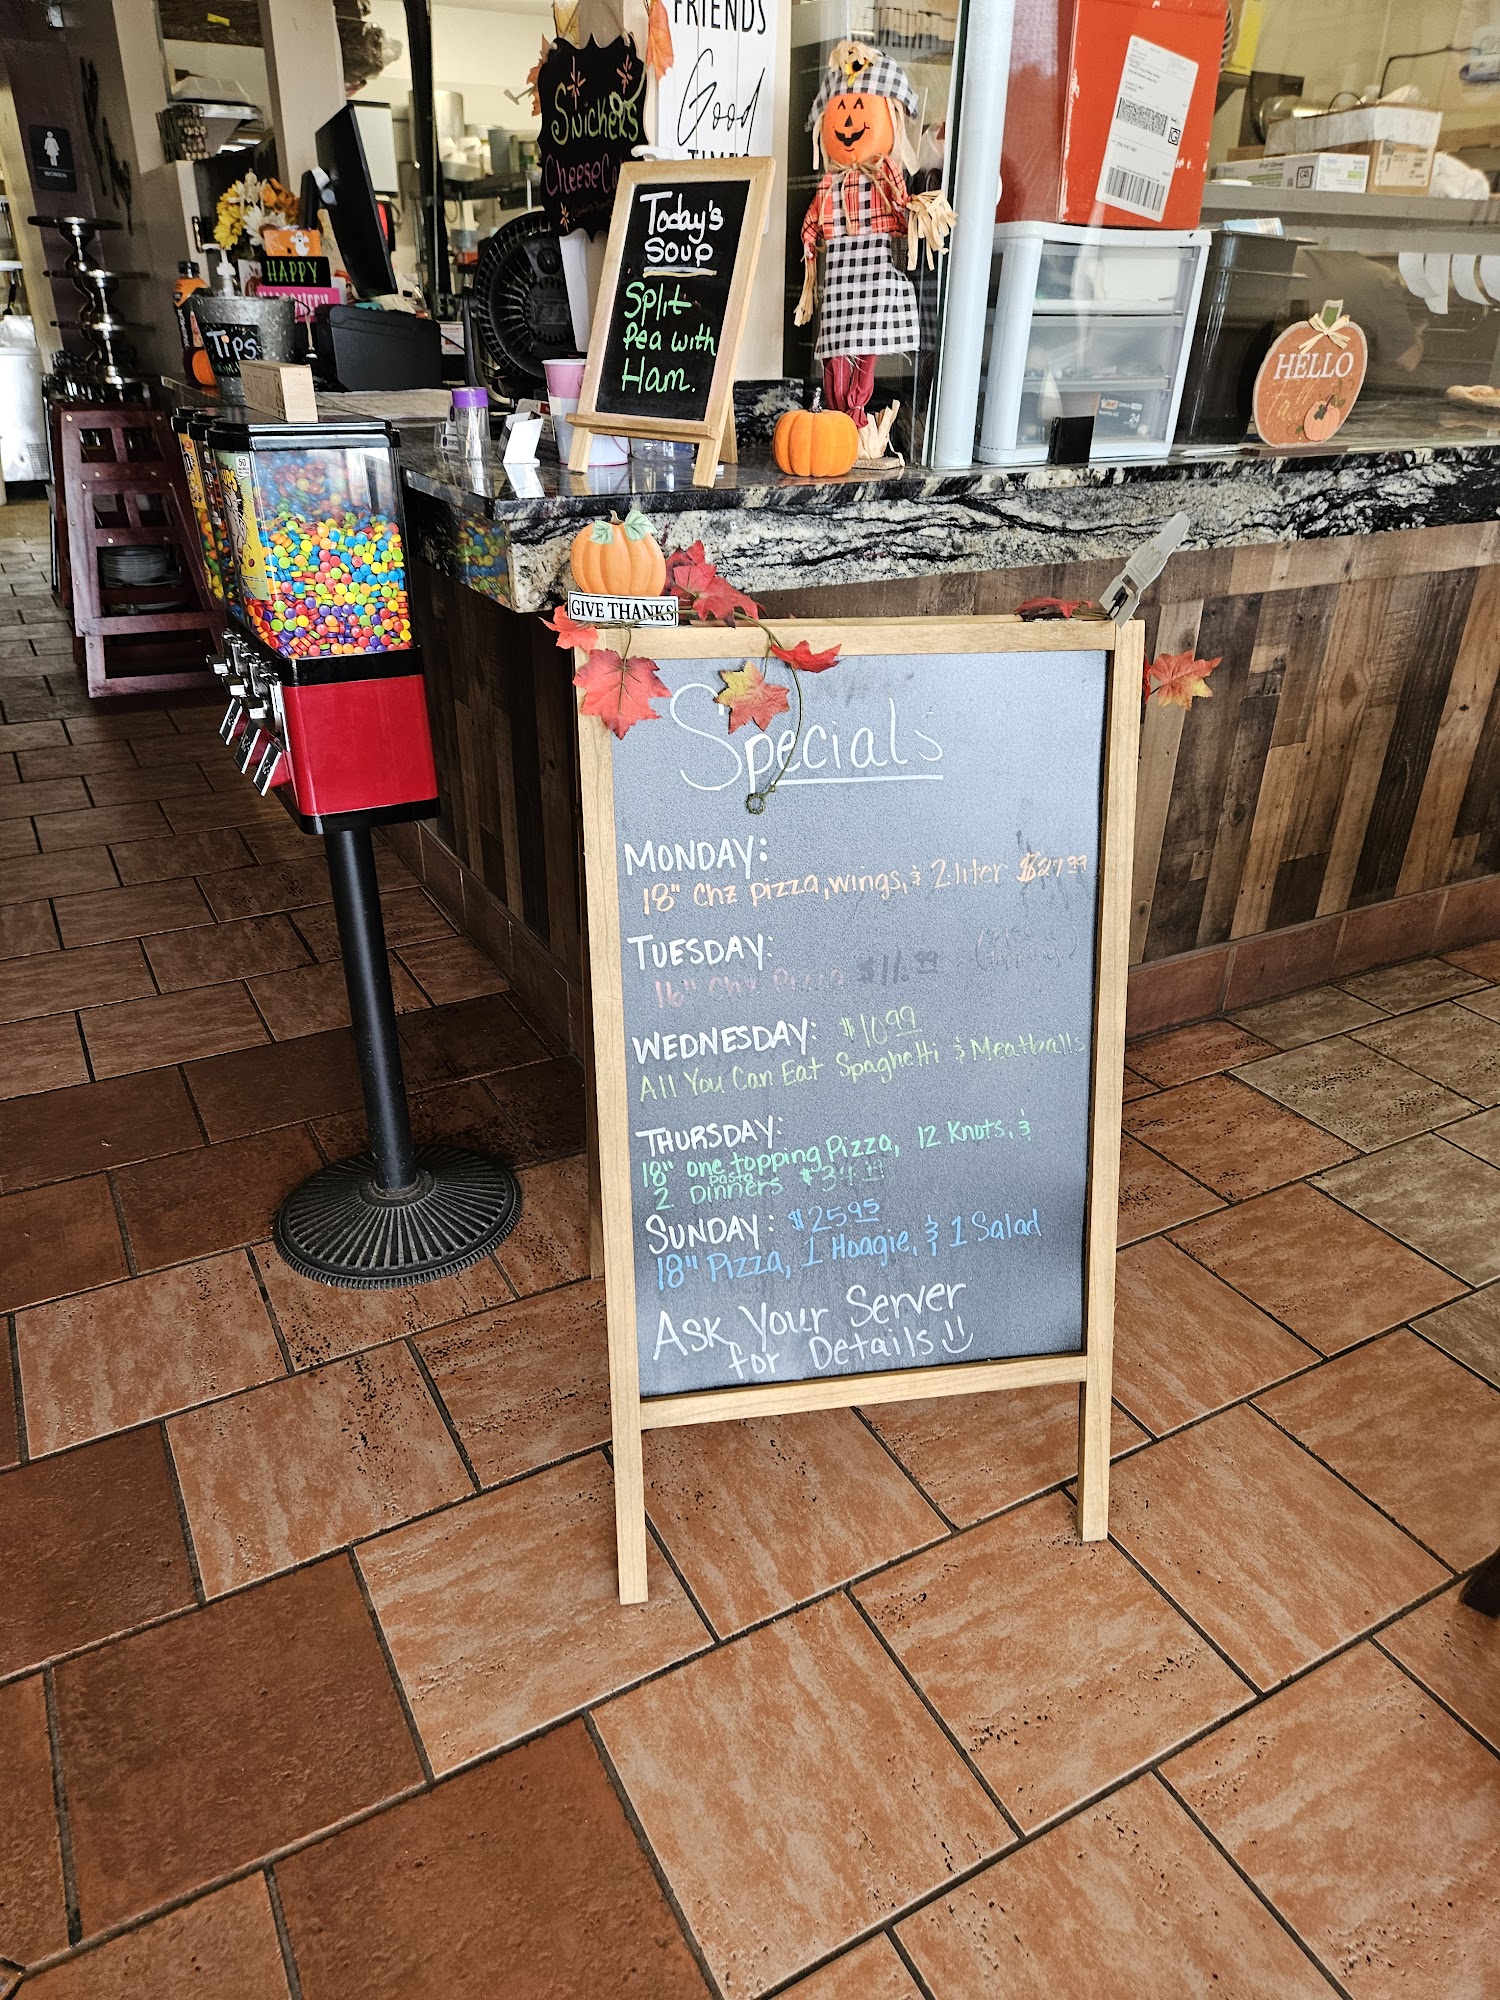 FRIENDS
Good
TIMES
Snickers
WOMEN
Today's
Soup
Split
Pea with
Ham.
HAPPY
Tips
HELLO
fall
GIVE THANKS
Specials
MONDAY:
18" Chz pizza, wings, & 2 liter $27.99
TUESDAY:
16" Chz Pizza $11.99
WEDNESDAY: $10.99
All You Can Eat Spaghetti & Meatballs
THURSDAY:
18" one topping Pizza, 12 Knots, &
2 pasta Dinners
SUNDAY: $25.95
18" Pizza, 1 Hoagie, & 1 Salad
Ask Your Server
for Details